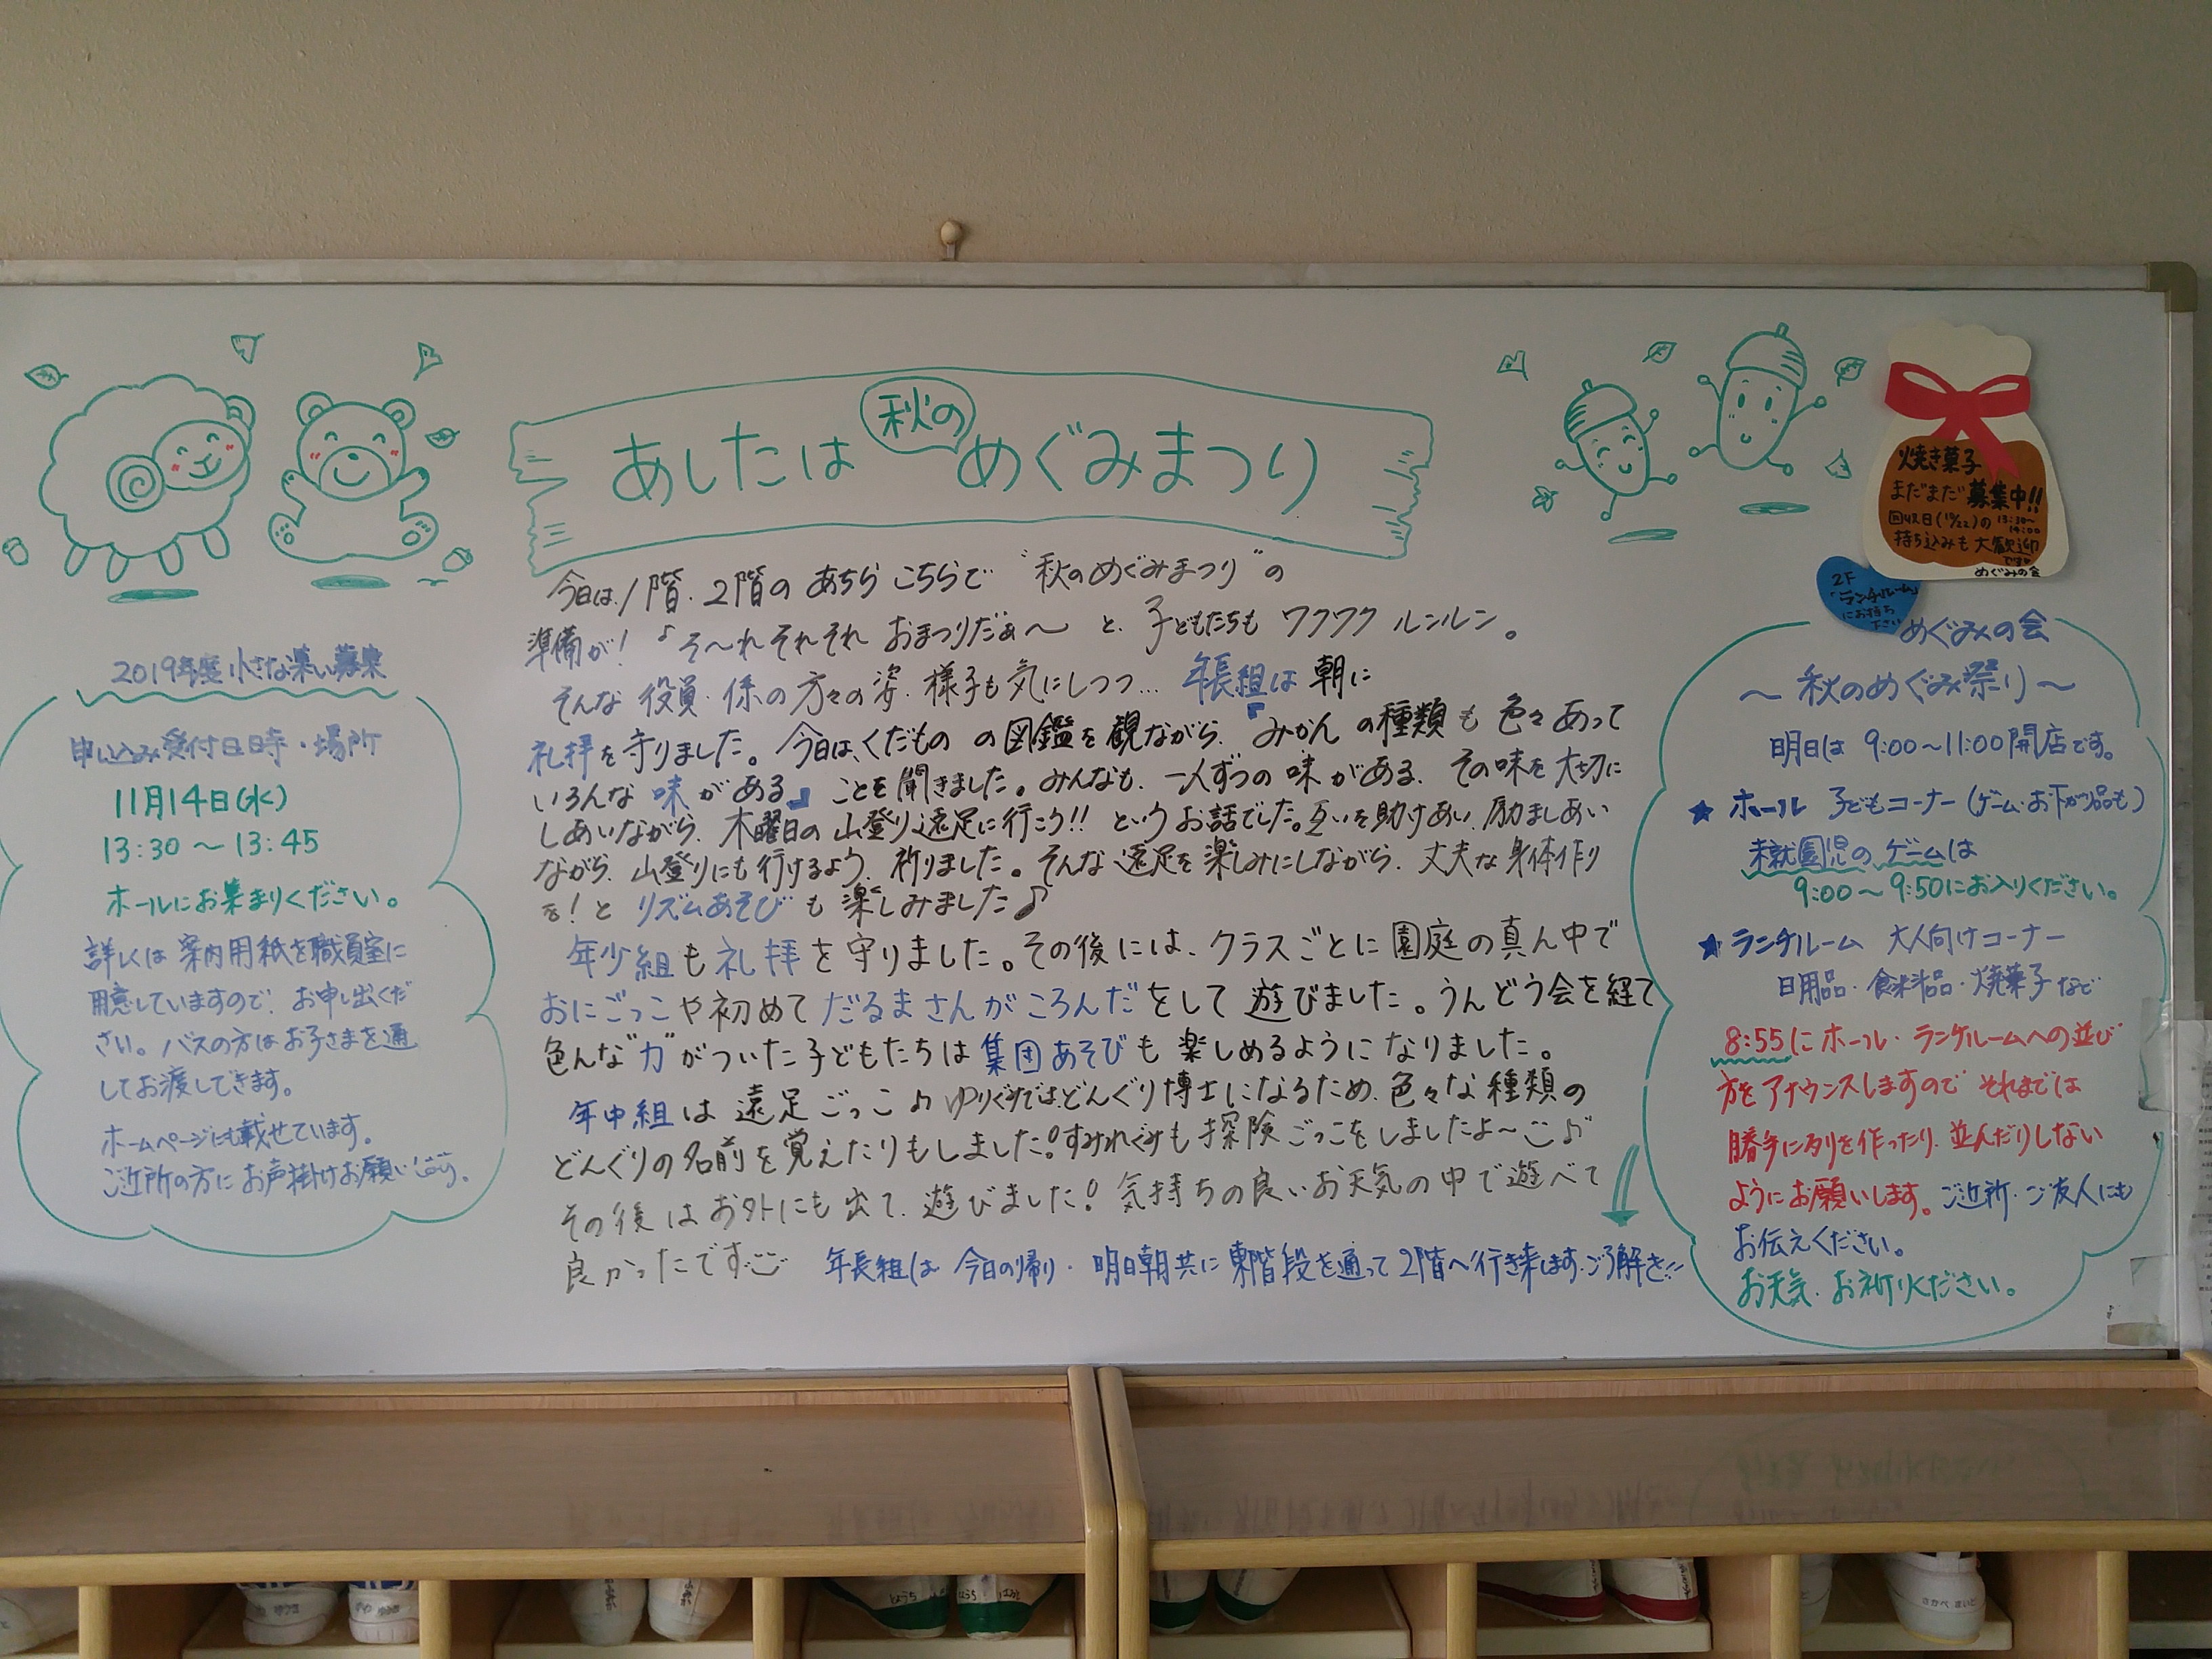 あしたは秋のめぐみまつり
今日は、1階・2階のあちらこちらで"秋のめぐみまつり"の
準備が!「そ〜れそれそれおまつりだぁ〜と、子どもたちもワクワクルンルン。
そんな役員・係の方々の姿・様子も気にしつつ…年長組は朝に
礼拝を守りました。今日は、くだものの図鑑を観ながら、『みかんの種類も色々あって
いろんな味がある』ことを聞きました。みんなも、一人ずつの味がある、その味を大切に
しあいながら、木曜日の山登り遠足に行こう!!というお話でした。互いを助けあい、励ましあい
ながら、山登りにも行けるよう、祈りました。そんな遠足を楽しみにしながら、丈夫な身体作り
を!とリズムあそびも楽しみました♪
年少組も礼拝を守りました。その後には、クラスごとに園庭の真ん中で
おにごっこや初めてだるまさんがころんだをして遊びました。うんどう会を経て
色んな"力"がついた子どもたちは集団あそびも楽しめるようになりました。
年中組は遠足ごっこ♪ゆりぐみではどんぐり博士になるため、色々な種類の
どんぐりの名前を覚えたりもしました!すみれぐみも探険ごっこをしましたよ〜♪
その後はお外にも出て、遊びました!気持ちの良いお天気の中で遊べて
良かったです
年長組は今日の帰り・明日朝共に東階段を通って2階へ行き来します。ご了解を!!
2019年度小さな集い募集
申し込み受付日時・場所
11月14日(水)
13:30〜13:45
ホールにお集まりください。
詳しくは案内用紙を職員室に
用意していますので、お申し出くだ
さい。バスの方はお子さまを通
してお渡しできます。
ホームページにも載せています。
ご近所の方にお声掛けお願いします。
焼き菓子
まだまだ募集中!!
回収日(10/22)の13:30〜
14:00
持ち込みも大歓迎
です
めぐみの会
2F
「ランチルーム」
にお持ち
下さい
めぐみの会
〜秋のめぐみ祭り〜
明日は9:00〜11:00開店です。
★ホール 子どもコーナー(ゲーム・お下がり品も)
未就園児のゲームは
9:00〜9:50にお入りください。
★ランチルーム 大人向けコーナー
日用品・食料品・焼菓子など
8:55にホール・ランチルームへの並び
方をアナウンスしますのでそれまでは
勝手に列を作ったり、並んだりしない
ようにお願いします。ご近所・ご友人にも
お伝えください。
お天気、お祈りください。
さかべ まいと